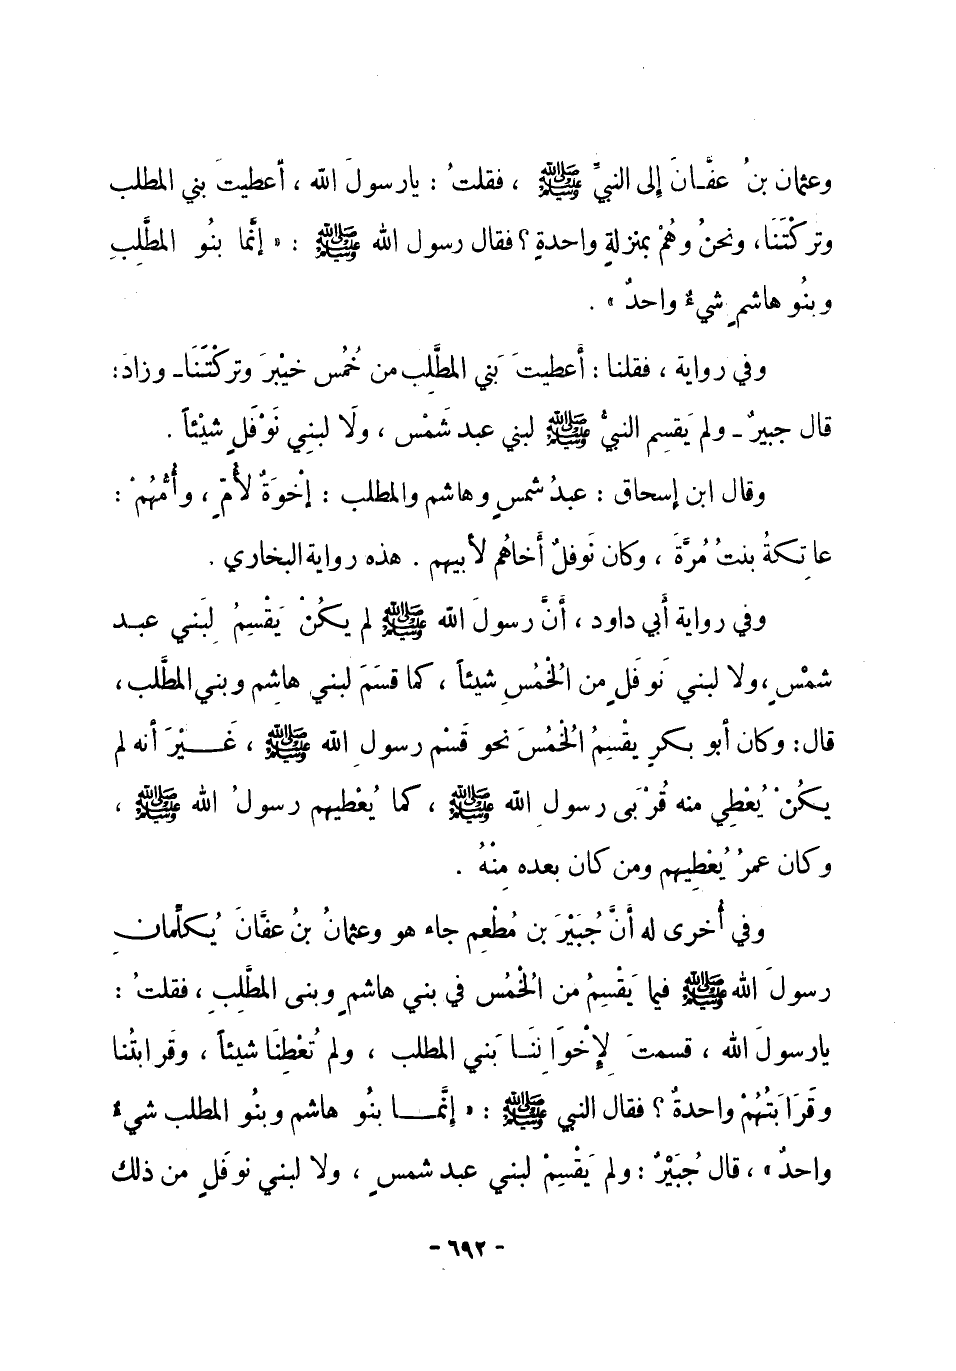 وعثمان بنُ عفَّـانَ إلى النبيِّ ﷺ ، فقلتُ : يارسولَ الله ، أعطيتَ بني المطلب
وتركْتَنَا، ونحنُ وهُمْ بمنزلةٍ واحدةٍ ؟ فقال رسول الله ﷺ : « إنَّما بنُو المطَّلِبِ
وبنُو هاشمٍ شيءٌ واحدٌ » .
وفي رواية ، فقلنا : أَعطيتَ بَني المطَّلِبِ من خُمُس خيبْرَ وتركْتَنَا ـ وزادَ :
قال جبيرٌ ـ ولم يَقسِم النبيُّ ﷺ لبني عبد شَمْس ، ولَا لبنِي نَوْفَلٍ شيْئاً .
وقال ابن إسحاق : عبدُ شمسٍ وهاشم والمطلب : إخْوَةٌ لأُمّ ٍ ، وأُمُّهُمْ :
عاتِكةُ بنتُ مُرَّةَ ، وكان نَوفلٌ أَخاهُم لأَبيهم . هذه رواية البخاري .
وفي رواية أَبي داود ، أَنَّ رسولَ الله ﷺ لم يكُنْ يَقْسِمُ لِبَني عبـد
شمْسٍ ، ولا لبني نَوفَلٍ من الخُمُسِ شيئاً ، كما قسَمَ لبني هاشِم وبني المطَّلب ،
قال : وكان أبو بكرٍ يقْسِمُ الخُمْسَ نحو قَسْم رسول الله ﷺ ، غَــيْرَ أنه لم
يكُنْ يُعْطِي منه قُرْبَى رسول الله ﷺ ، كما يُعْطيهم رسولُ الله ﷺ ،
وكان عمرُ يُعْطِيهم ومن كان بعده مِنْهُ .
وفي أُخرى له أَنَّ جُبَيْرَ بن مُطْعِم جاء هو وعثمانُ بنُ عفَّانَ يُكلِّمانِ
رسولَ الله ﷺ فيما يَقْسِمُ من الخُمْس في بني هاشمٍ وبنى المطَّلِبِ ، فقلتُ :
يارسولَ الله ، قسمتَ لِإخْوَانِنَـا بَني المطلب ، ولم تُعْطِنَا شيئاً ، وقَرابتُنا
وقَرَابَتُهُمْ واحدةٌ ؟ فقال النبي ﷺ : « إنَّمــا بنُو هاشم وبنُو المطلب شيءٌ
واحدٌ » ، قال جُبَيْرٌ : ولم يَقْسِمْ لبني عبد شمسٍ ، ولا لبني نوفَلٍ من ذلك
- ٦٩٢ -